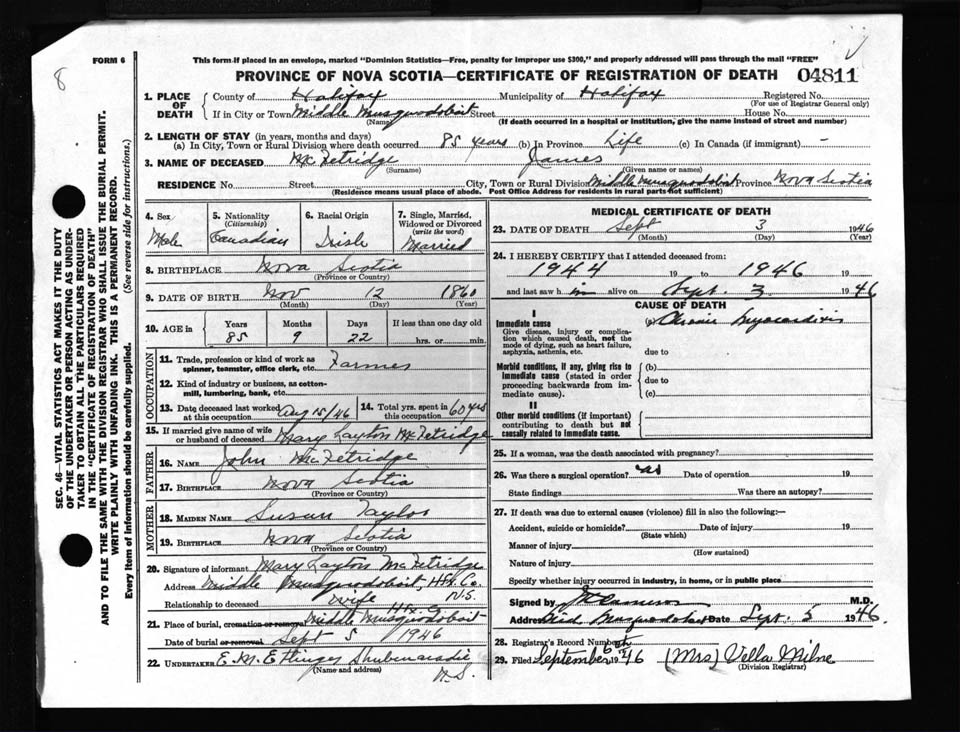 8
FORM 6
This form if placed in an envelope, marked "Dominion Statistics—Free, penalty for improper use $300," and properly addressed will pass through the mail "FREE"
PROVINCE OF NOVA SCOTIA—CERTIFICATE OF REGISTRATION OF DEATH 04811
SEC. 46—VITAL STATISTICS ACT MAKES IT THE DUTY
OF THE UNDERTAKER OR PERSON ACTING AS UNDER-
TAKER TO OBTAIN ALL THE PARTICULARS REQUIRED
IN THE "CERTIFICATE OF REGISTRATION OF DEATH"
AND TO FILE THE SAME WITH THE DIVISION REGISTRAR WHO SHALL ISSUE THE BURIAL PERMIT.
WRITE PLAINLY WITH UNFADING INK. THIS IS A PERMANENT RECORD.
Every item of Information should be carefully supplied. (See reverse side for instructions.)
1. PLACE OF DEATH
County of Halifax Municipality of Halifax Registered No.
(For use of Registrar General only)
If in City or Town Middle Musquodoboit Street House No.
(Name) (If death occurred in a hospital or institution, give the name instead of street and number)
2. LENGTH OF STAY (in years, months and days)
(a) In City, Town or Rural Division where death occurred 85 years (b) In Province Life (c) In Canada (if immigrant) —
3. NAME OF DECEASED McFetridge James
(Surname) (Given name or names)
RESIDENCE No. Street City, Town or Rural Division Middle Musquodoboit Province Nova Scotia
(Residence means usual place of abode. Post Office Address for residents in rural parts not sufficient)
4. Sex
Male
5. Nationality
(Citizenship)
Canadian
6. Racial Origin
Irish
7. Single, Married,
Widowed or Divorced
(write the word)
Married
8. BIRTHPLACE Nova Scotia
(Province or Country)
9. DATE OF BIRTH Nov 12 1860
(Month) (Day) (Year)
10. AGE in
Years Months Days If less than one day old
85 9 22 hrs. or min.
OCCUPATION
11. Trade, profession or kind of work as
spinner, teamster, office clerk, etc. Farmer
12. Kind of industry or business, as cotton-
mill, lumbering, bank, etc.
13. Date deceased last worked
at this occupation Aug 15/46
14. Total yrs. spent in
this occupation 60 yrs
15. If married give name of wife
or husband of deceased Mary Layton McFetridge
FATHER
16. NAME John McFetridge
17. BIRTHPLACE Nova Scotia
(Province or Country)
MOTHER
18. MAIDEN NAME Susan Taylor
19. BIRTHPLACE Nova Scotia
(Province or Country)
20. Signature of informant Mary Layton McFetridge
Address Middle Musquodoboit, Hfx. Co.
N.S.
Relationship to deceased wife
Hfx. Co.
21. Place of burial, cremation or removal Middle Musquodoboit
Date of burial or removal Sept 5 1946
22. UNDERTAKER E. M. Ettinger Shubenacadie
(Name and address) N.S.
MEDICAL CERTIFICATE OF DEATH
23. DATE OF DEATH Sept 3 1946
(Month) (Day) (Year)
24. I HEREBY CERTIFY that I attended deceased from:
1944 19 to 1946 19
and last saw him alive on Sept. 3 1946
CAUSE OF DEATH
I
Immediate cause
Give disease, injury or complica-
tion which caused death, not the
mode of dying, such as heart failure,
asphyxia, asthenia, etc.
(a) Chronic Myocarditis
due to
Morbid conditions, if any, giving rise to
immediate cause (stated in order
proceeding backwards from im-
mediate cause).
(b)
due to
(c)
II
Other morbid conditions (if important)
contributing to death but not
causally related to immediate cause.
25. If a woman, was the death associated with pregnancy?
26. Was there a surgical operation? Date of operation 19
State findings Was there an autopsy?
27. If death was due to external causes (violence) fill in also the following:—
Accident, suicide or homicide? Date of injury 19
(State which)
Manner of injury
(How sustained)
Nature of injury
Specify whether injury occurred in industry, in home, or in public place
Signed by M.D.
Address Mid Musquodoboit Date Sept. 5 1946.
28. Registrar's Record Number
29. Filed September 6th 1946 (Mrs) Vella Milne
(Division Registrar)